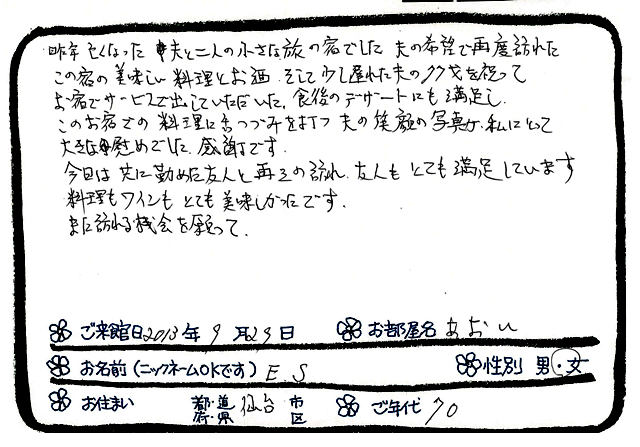 昨年亡くなった 夫と二人の小さな旅の宿でした 夫の希望で再度訪れた
この宿の美味しい料理とお酒 そして少し遅れた夫の夕食を祝って
お宿でサービスで出していただいた、食後のデザートにも満足し、
このお宿での料理に舌つづみを打つ夫の笑顔の写真が私にとって
大きな慰めでした 感謝です。
今日は共に勤めた友人と再びの訪れ 友人もとても満足しています
料理もワインもとても美味しかったです。
また訪れる機会を願って。
ご来館日2013年 9月29日 お部屋名 あおい
お名前(ニックネームOKです) E.S 性別 男・女
お住まい 都・道・府・県 仙台 市区 ご年代 70